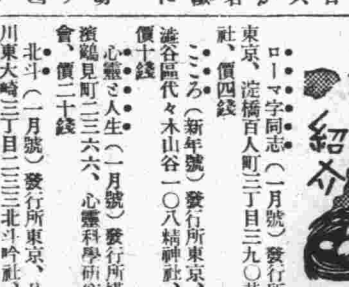 紹介
ローマ字同志（一月號）發行所
東京、淀橋百人町三丁目三九〇
社、價四錢
こころ（新年號）發行所東京、
澁谷區代々木山谷一〇八精神社、
價十錢
心靈と人生（一月號）發行所橫
濱鶴見町二三六六、心靈科學硏究
會、價二十錢
北斗（一月號）發行所東京、
川東大崎三丁目二三三北斗吟社、